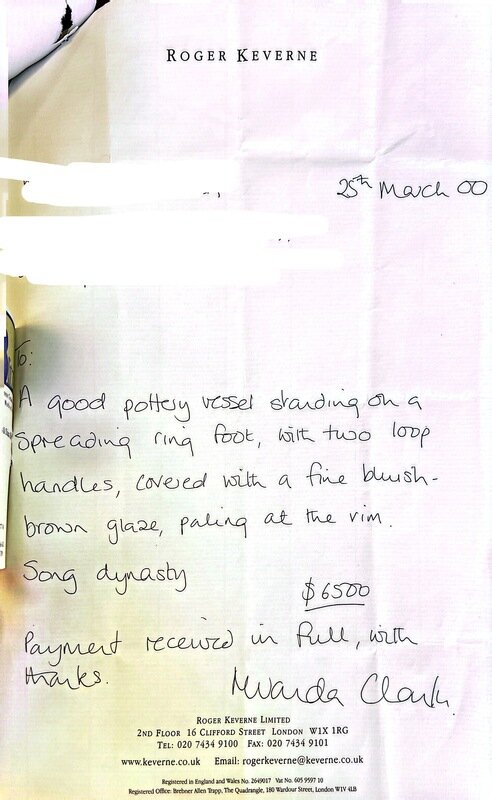 ROGER KEVERNE
25th March 00
To:
A good pottery vessel standing on a
spreading ring foot, with two loop
handles, covered with a fine bluish-
brown glaze, paling at the rim.
Song dynasty
$6500
Payment received in full, with
thanks.
Miranda Clark.
ROGER KEVERNE LIMITED
2ND FLOOR 16 CLIFFORD STREET LONDON W1X 1RG
TEL: 020 7434 9100 FAX: 020 7434 9101
www.keverne.co.uk Email: rogerkeverne@keverne.co.uk
Registered in England and Wales No. 2649017 Vat No 605 9597 10
Registered Office: Brebner Allen Trapp, The Quadrangle, 180 Wardour Street, London W1V 4LB